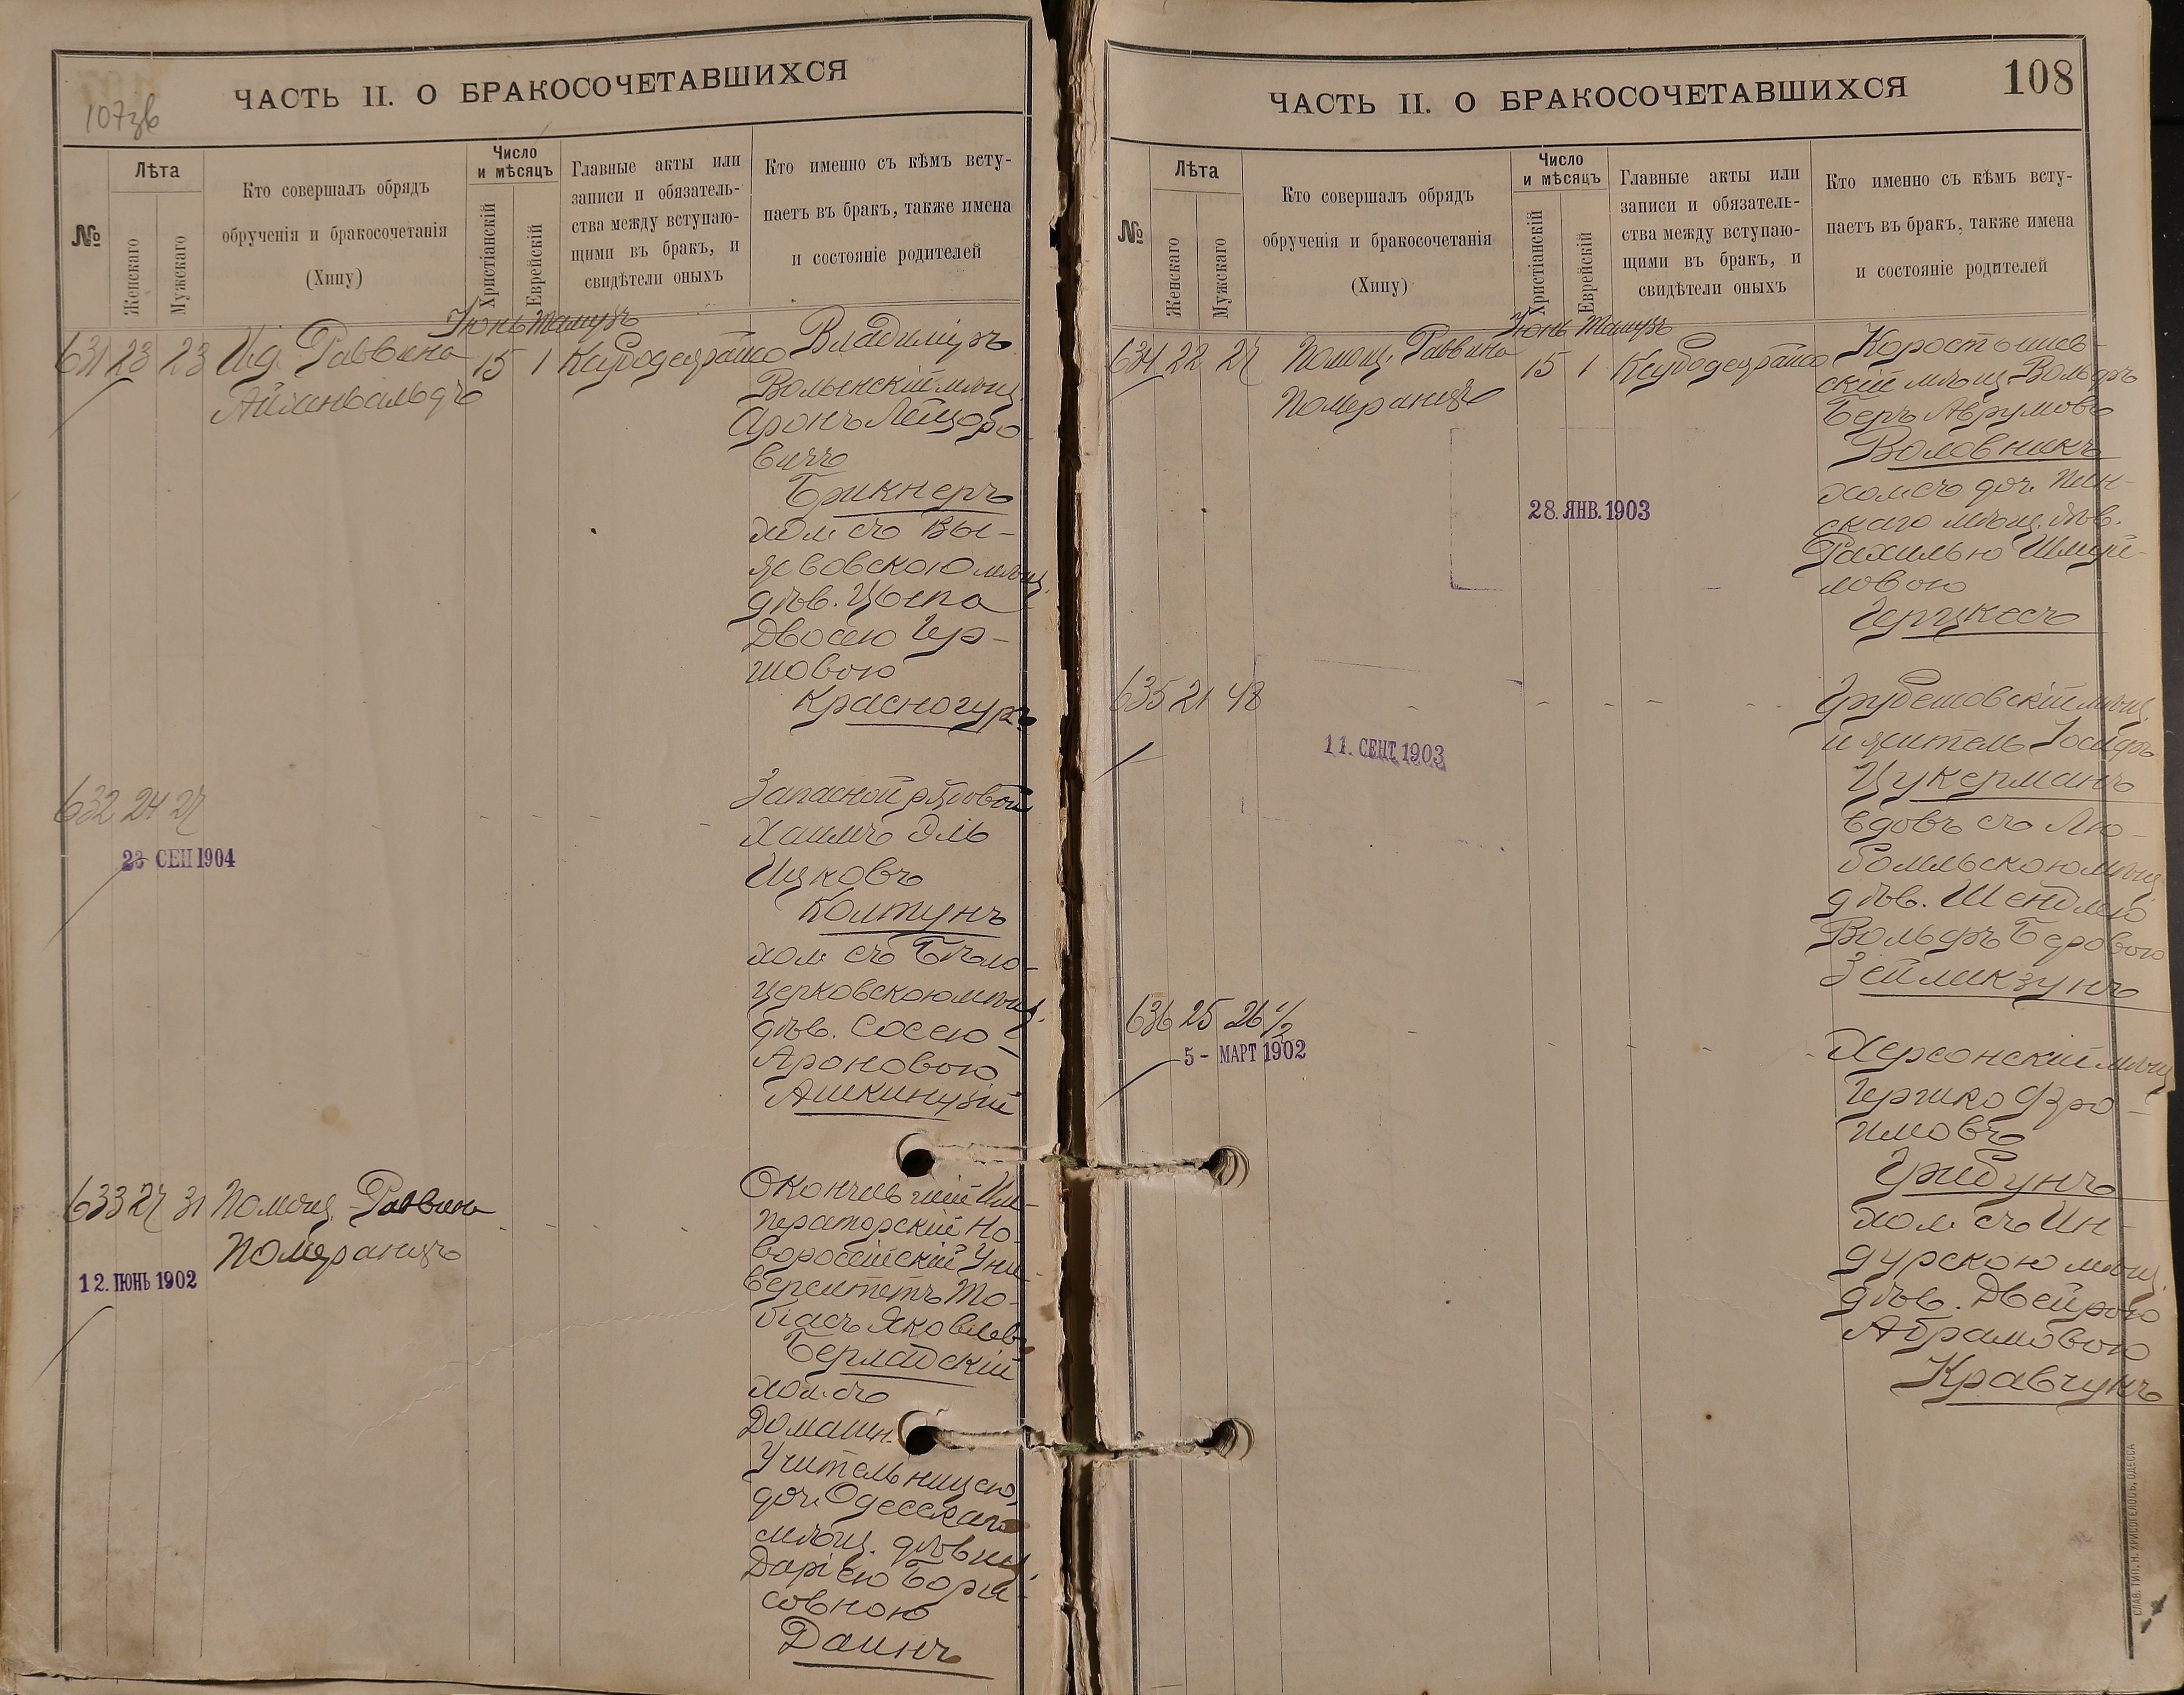 107зв
ЧАСТЬ II. О БРАКОСОЧЕТАВШИХСЯ
№
Лѣта
Женскаго
Мужскаго
Кто совершалъ обрядъ
обрученія и бракосочетанія
(Хипу)
Число
и мѣсяцъ
Христіанскій
Еврейскій
Главные акты или
записи и обязатель-
ства между вступаю-
щими въ бракъ, и
свидѣтели оныхъ
Кто именно съ кѣмъ всту-
паетъ въ бракъ, также имена
и состояніе родителей
Іюнь Тамузъ
631 23 23 Ид. Раввина 15 1
Айзенвальдъ
Владиміръ
Волынскій мѣщ.
Аронъ Лейзоро
вичъ
Брикнеръ
хол. съ Вы-
зѣвовскою мѣщ.
дѣв. Цыпа
Двосею Гер-
шовою
Красногуръ
632 24 27 - - - -
23 СЕН 1904
Запасной рядовой
Хаимъ Эль
Ицковъ
Колтунъ
хол. съ Бѣло-
церковскою мѣщ.
дѣв. Соссею
Ароновою
Ашкинузій
633 27 31 Помощ. Раввина - - -
Померанцъ
12. ІЮНЬ 1902
Окончившій Им-
ператорскій Но-
вороссійскій Уни-
верситетъ То-
біасъ Яковлевъ
Берладскій
хол. съ
Домашн.
Учительницею,
доч. Одесскаго
мѣщ. дѣвиц.
Даріею Бори-
совною
Даинъ
ЧАСТЬ II. О БРАКОСОЧЕТАВШИХСЯ
108
№
Лѣта
Женскаго
Мужскаго
Кто совершалъ обрядъ
обрученія и бракосочетанія
(Хипу)
Число
и мѣсяцъ
Христіанскій
Еврейскій
Главные акты или
записи и обязатель-
ства между вступаю-
щими въ бракъ, и
свидѣтели оныхъ
Кто именно съ кѣмъ всту-
паетъ въ бракъ, также имена
и состояніе родителей
Іюнь Тамузъ
634 22 27 Помощ. Раввина 15 1
Померанцъ
28. ЯНВ. 1903
Коростышев-
скій мѣщ. Вольфъ
Беръ Аврумовъ
Воловникъ
хол. съ доч. Пин-
скаго мѣщ. дѣв.
Рахилью Шмуй-
ловою
Герцкесъ
635 21 48 - - - - -
11. СЕНТ. 1903
Грубешовскій мѣщ.
и житель Іосифъ
Цукерманъ
вдовъ съ Лю-
бомльскою мѣщ.
дѣв. Шендлею
Вольфъ Беровою
Зейликзунъ
636 25 26 1/2 - - - -
5 - МАРТ 1902
Херсонскій мѣщ.
Гершко Фро-
имовъ
Грибунъ
хол. съ Ин-
дурскою мѣщ.
дѣв. Двейрою
Абрамовою
Кравчукъ
СЛАВ. ТИП. Н. ХРИСОГЕЛОСЪ, ОДЕССА